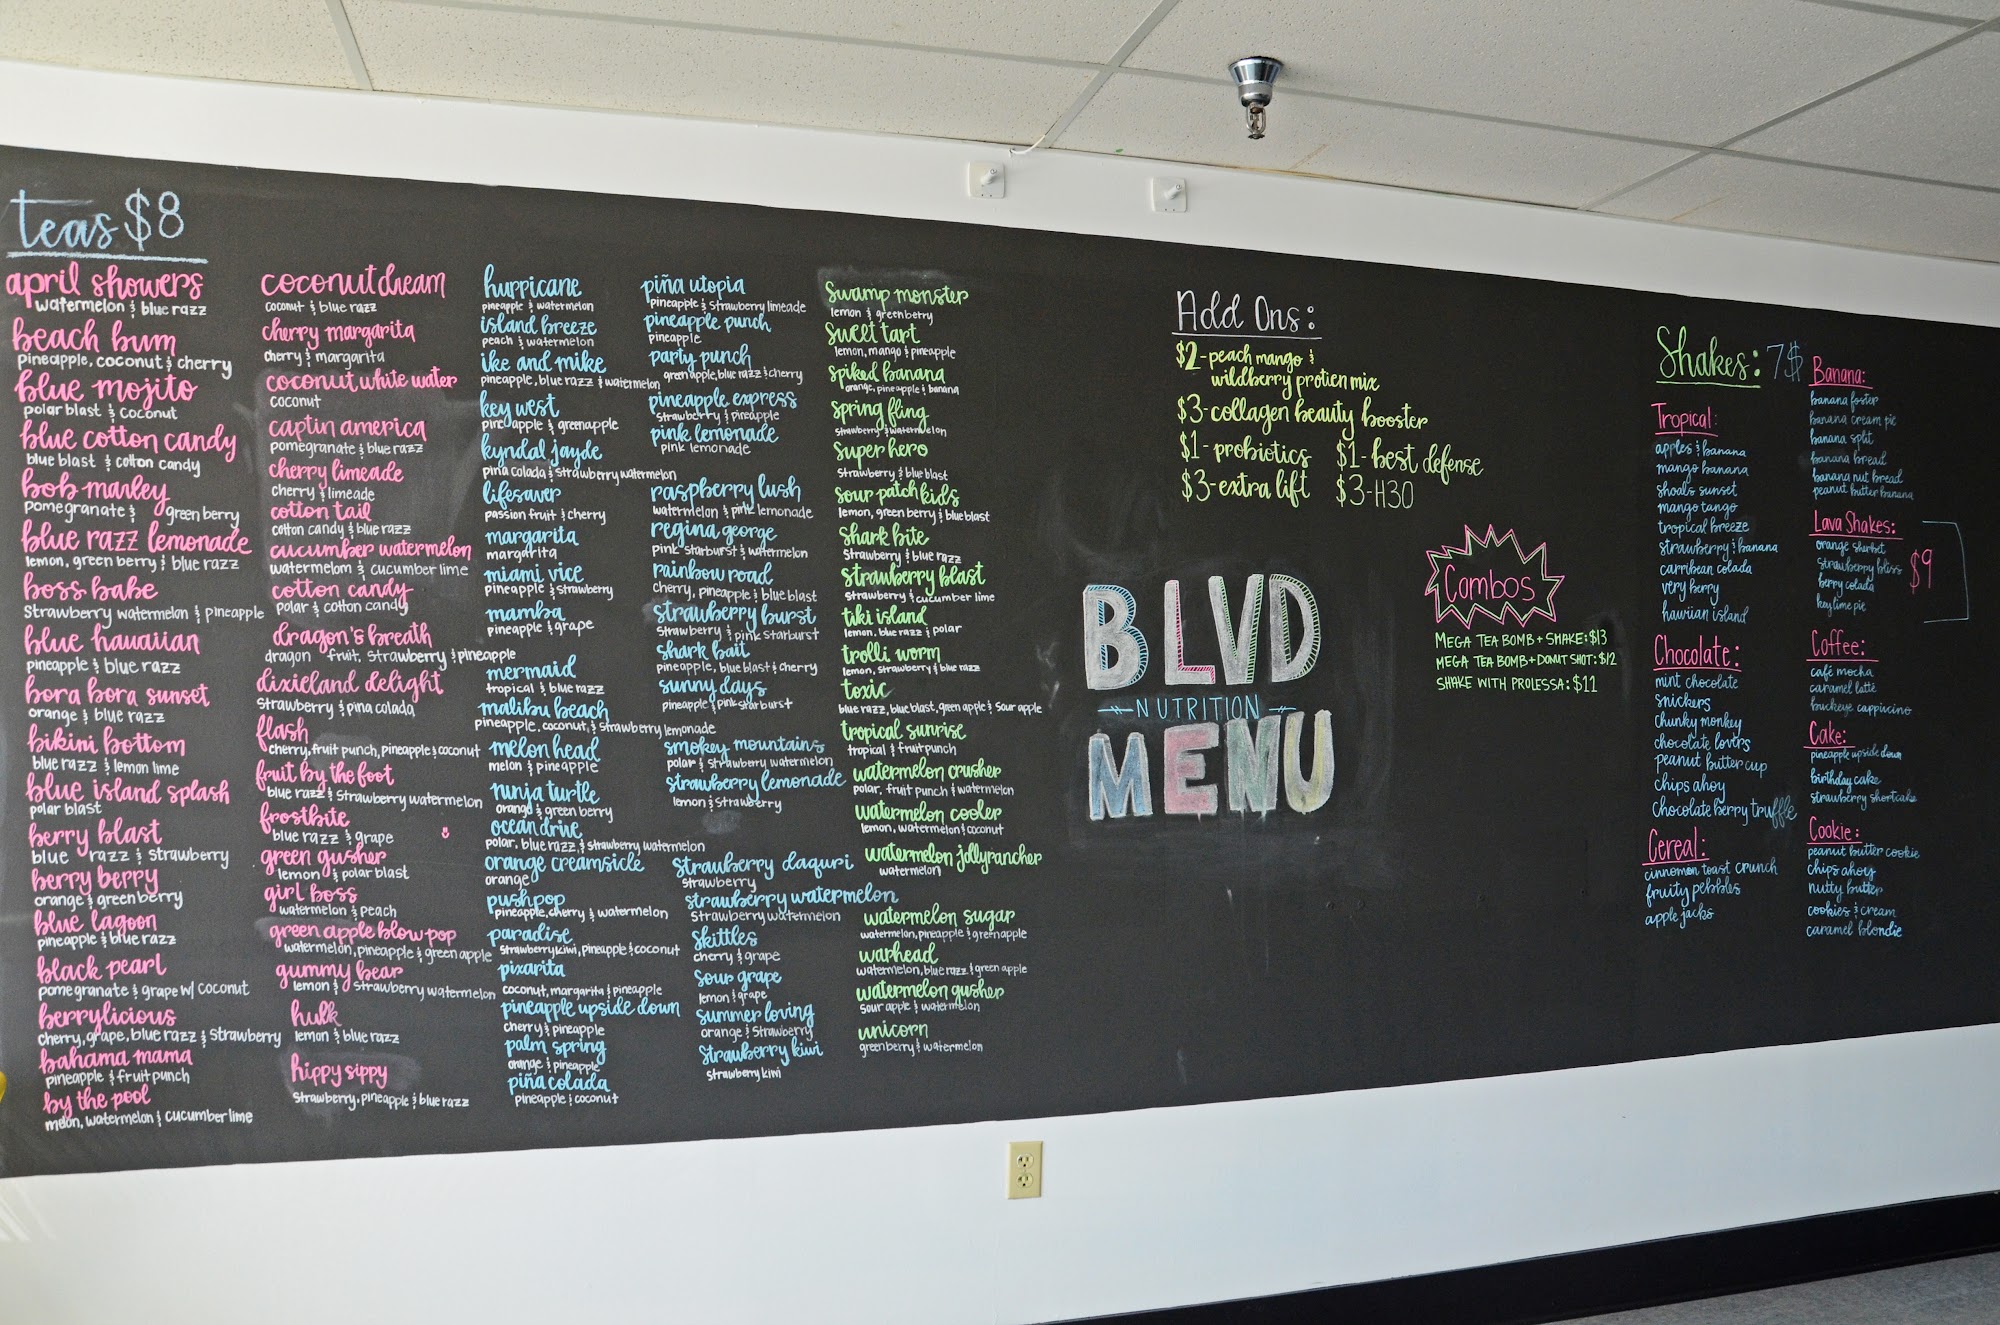 teas $8
april showers
watermelon & blue razz
beach bum
pineapple, coconut & cherry
blue mojito
polar blast & coconut
blue cotton candy
blue blast & cotton candy
bob marley
pomegranate & green berry
blue razz lemonade
lemon, green berry & blue razz
boss babe
Strawberry watermelon & pineapple
blue hawaiian
pineapple & blue razz
bora bora sunset
orange & blue razz
bikini bottom
blue razz & lemon lime
blue island splash
polar blast
berry blast
blue razz & strawberry
berry berry
orange & green berry
blue lagoon
pineapple & blue razz
black pearl
pomegranate & grape w/ coconut
berrylicious
cherry, grape, blue razz & strawberry
bahama mama
pineapple & fruit punch
by the pool
melon, watermelon & cucumber lime
coconut dream
coconut & blue razz
cherry margarita
cherry & margarita
coconut white water
coconut
captin america
pomegranate & blue razz
cherry limeade
cherry & limeade
cotton tail
cotton candy & blue razz
cucumber watermelon
watermelon & cucumber lime
cotton candy
polar & cotton candy
dragon's breath
dragon fruit, strawberry & pineapple
dixieland delight
strawberry & pina colada
flash
cherry, fruit punch, pineapple & coconut
fruit by the foot
blue razz & strawberry watermelon
frostbite
blue razz & grape
green gusher
lemon & polar blast
girl boss
watermelon & peach
green apple blow pop
watermelon, pineapple & green apple
gummy bear
lemon & strawberry watermelon
hulk
lemon & blue razz
hippy sippy
strawberry, pineapple & blue razz
hurricane
pineapple & watermelon
island breeze
peach & watermelon
ike and mike
pineapple, blue razz & watermelon
key west
pineapple & green apple
kyndal jayde
pina colada & strawberry watermelon
lifesaver
passion fruit & cherry
margarita
margarita
miami vice
pineapple & strawberry
mamba
pineapple & grape
mermaid
tropical & blue razz
malibu beach
pineapple, coconut, & strawberry lemonade
melon head
melon & pineapple
ninja turtle
orange & green berry
ocean drive
polar, blue razz & strawberry watermelon
orange creamsicle
orange
push pop
pineapple, cherry & watermelon
paradise
strawberry kiwi, pineapple & coconut
pixarita
coconut, margarita & pineapple
pineapple upside down
cherry & pineapple
palm spring
orange & pineapple
piña colada
pineapple & coconut
piña utopia
pineapple & strawberry limeade
pineapple punch
pineapple
party punch
green apple, blue razz & cherry
pineapple express
strawberry & pineapple
pink lemonade
pink lemonade
raspberry lush
watermelon & pink lemonade
regina george
pink starburst & watermelon
rainbow road
cherry, pineapple & blue blast
strawberry burst
strawberry & pink starburst
shark bait
pineapple, blue blast & cherry
sunny days
pineapple & pink starburst
smokey mountains
polar & strawberry watermelon
strawberry lemonade
lemon & strawberry
strawberry daquri
strawberry
strawberry watermelon
strawberry watermelon
skittles
cherry & grape
sour grape
lemon & grape
summer loving
orange & strawberry
strawberry kiwi
strawberry kiwi
swamp monster
lemon & green berry
sweet tart
lemon, mango & pineapple
spiked banana
orange, pineapple & banana
spring fling
strawberry & watermelon
super hero
strawberry & blue blast
sour patch kids
lemon, green berry & blue blast
shark bite
strawberry & blue razz
strawberry blast
strawberry & cucumber lime
tiki island
lemon, blue razz & polar
trolli worm
lemon, strawberry & blue razz
toxic
blue razz, blue blast, green apple & sour apple
tropical sunrise
tropical & fruit punch
watermelon crusher
polar, fruit punch & watermelon
watermelon cooler
lemon, watermelon & coconut
watermelon jollyrancher
watermelon
watermelon sugar
watermelon, pineapple & green apple
warhead
watermelon, blue razz & green apple
watermelon gusher
sour apple & watermelon
unicorn
green berry & watermelon
Add Ons:
$2 - peach mango &
wildberry protien mix
$3 - collagen beauty booster
$1 - probiotics $1 - best defense
$3 - extra lift $3 - H30
BLVD
NUTRITION
MENU
Combos
MEGA TEA BOMB + SHAKE: $13
MEGA TEA BOMB + DONUT SHOT: $12
SHAKE WITH PROLESSA: $11
Shakes: 7$
Tropical:
apples & banana
mango banana
shoals sunset
mango tango
tropical breeze
strawberry & banana
carribean colada
very berry
hawiian island
Chocolate:
mint chocolate
snickers
chunky monkey
chocolate lovers
peanut butter cup
chips ahoy
chocolate berry truffle
Cereal:
cinnomon toast crunch
fruity pebbles
apple jacks
Banana:
banana foster
banana cream pie
banana split
banana bread
banana nut bread
peanut butter banana
Lava Shakes:
orange sherbet
strawberry bliss
berry colada
key lime pie
$9
Coffee:
café mocha
caramel latte
buckeye cappucino
Cake:
pineapple upside down
birthday cake
strawberry shortcake
Cookie:
peanut butter cookie
chips ahoy
nutty butter
cookies & cream
caramel blondie